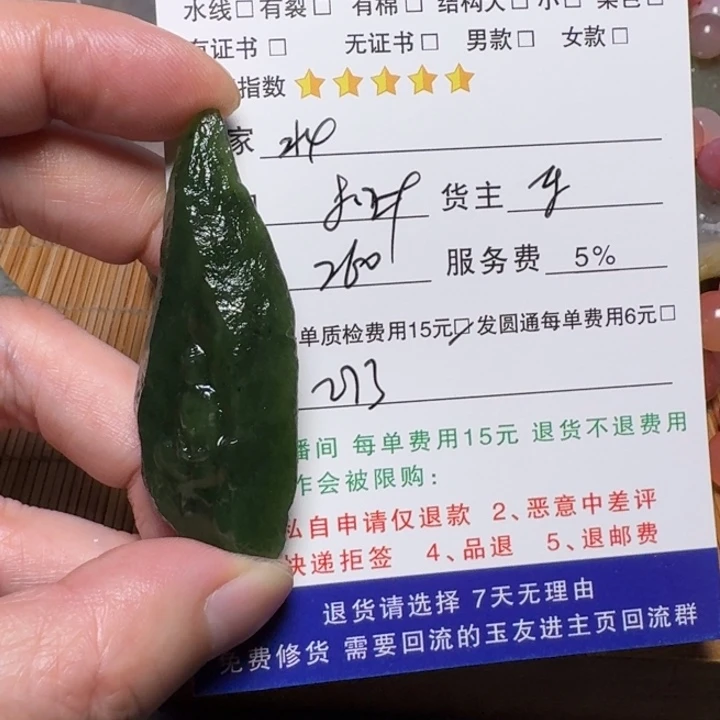 水线□ 有裂□ 有棉□ 结构大□ 小□ 染色□
有证书□ 无证书□ 男款□ 女款□
指数
家
货主
260 服务费 5%
单质检费用15元☑ 发圆通每单费用6元□
273
播间 每单费用15元 退货不退费用
作会被限购:
私自申请仅退款 2、恶意中差评
快递拒签 4、品退 5、退邮费
退货请选择 7天无理由
免费修货 需要回流的玉友进主页回流群